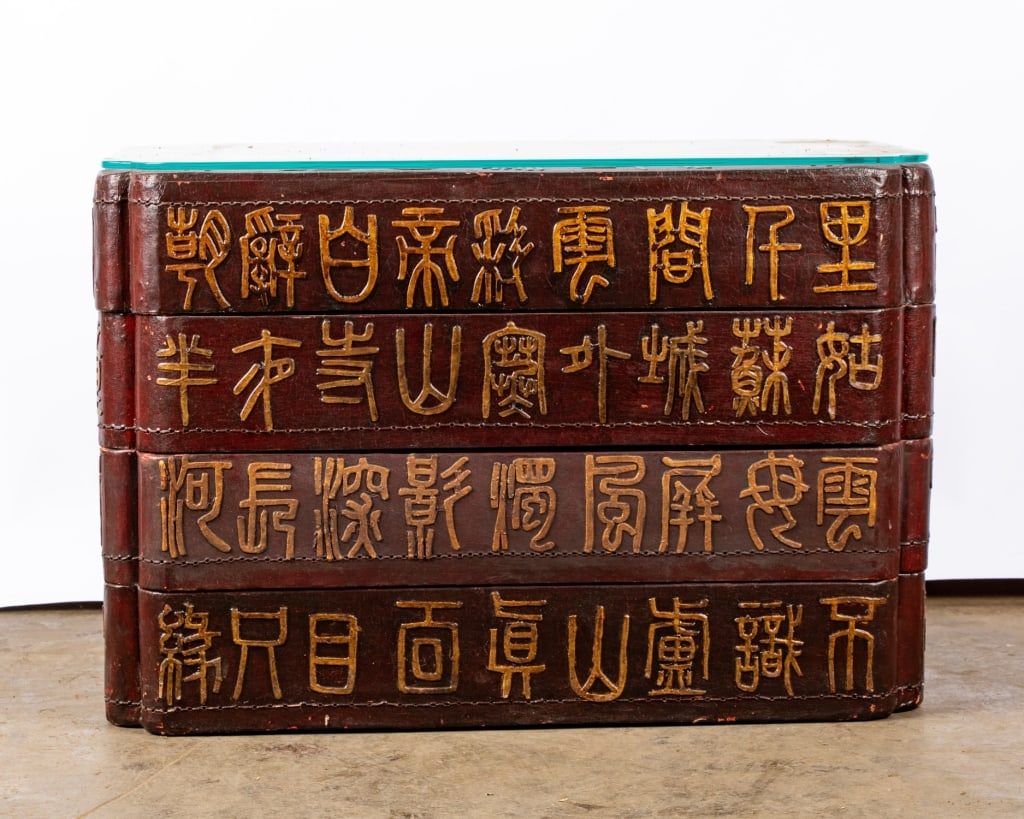 朝辭白帝彩雲間千里
姑蘇城外寒山寺夜半
雲母屏風燭影深長河
不識盧山真面目只緣